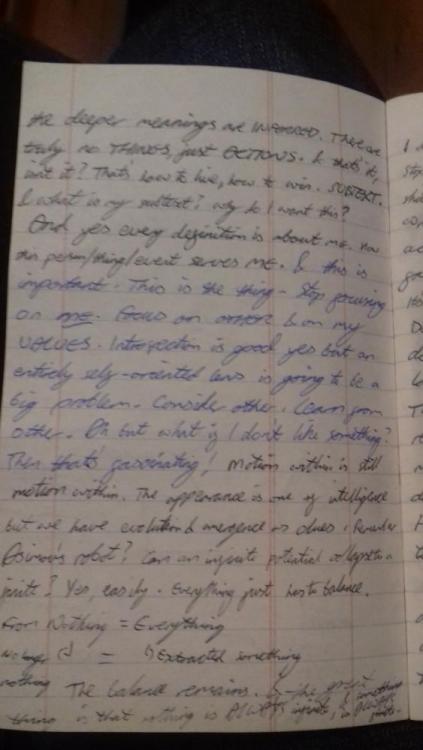 the deeper meanings are INFERRED. There are
truly no THINGS, just ACTIONS. & that's it,
isn't it? That's how to live, how to win. SUBTEXT.
& what is my subtext? why do I want this?
And yes every definition is about me. How
this person/thing/event serves ME. & this is
important. This is the thing - stop focusing
on me. Focus on OTHER & on my
VALUES. Introspection is good yes but an
entirely self-oriented lens is going to be a
big problem. Consider other. Learn from
other. Oh but what if I don't like something?
Then that's fascinating! Motion within is still
motion within. The appearance is one of intelligence
but we have evolution & emergence as clues. Remember
Asimov's robot? Can an infinite potential collapse to a
finite? Yes, easily. Everything just has to balance.
From Nothing = Everything
No longer = Extracted something
nothing The balance remains. the
thing is that nothing is ALWAYS infinite, & something is ALWAYS finite.